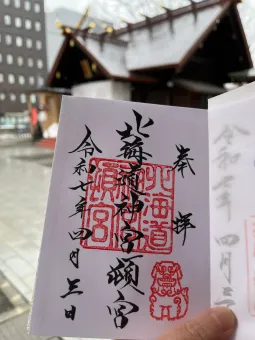 奉拝
北海道神宮頓宮
令和七年四月三日
北海道
頓宮
令和七年 四月三